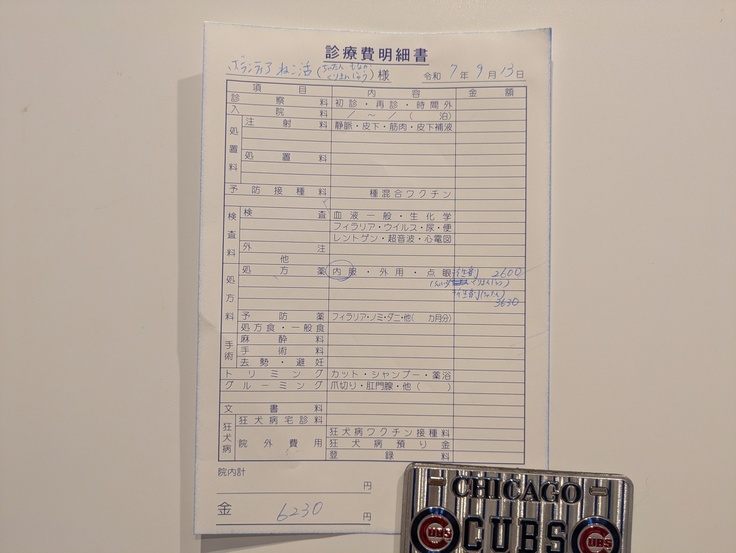 診療費明細書
ボランティア ねこ活 様 令和 7 年 9 月 13 日
項目 内容 金額
診察料 初診・再診・時間外
入院料 / ~ / ( 泊)
処置料 注射料 静脈・皮下・筋肉・皮下補液
処置料
予防接種料 種混合ワクチン
検査料 検査 血液一般・生化学
フィラリア・ウイルス・尿・便
レントゲン・超音波・心電図
外注
他
処方料 処方薬 内服・外用・点眼 2600
3630
予防薬 フィラリア・ノミ・ダニ・他( カ月分)
処方食・一般食
手術 麻酔料
手術料
去勢・避妊
トリミング カット・シャンプー・薬浴
グルーミング 爪切り・肛門腺・他( )
文書料
狂犬病 狂犬病宅診料
院外費用 狂犬病ワクチン接種料
狂犬病預り金
登録料
院内計 円
金 6230 円
CHICAGO
CUBS
CUBS
CUBS